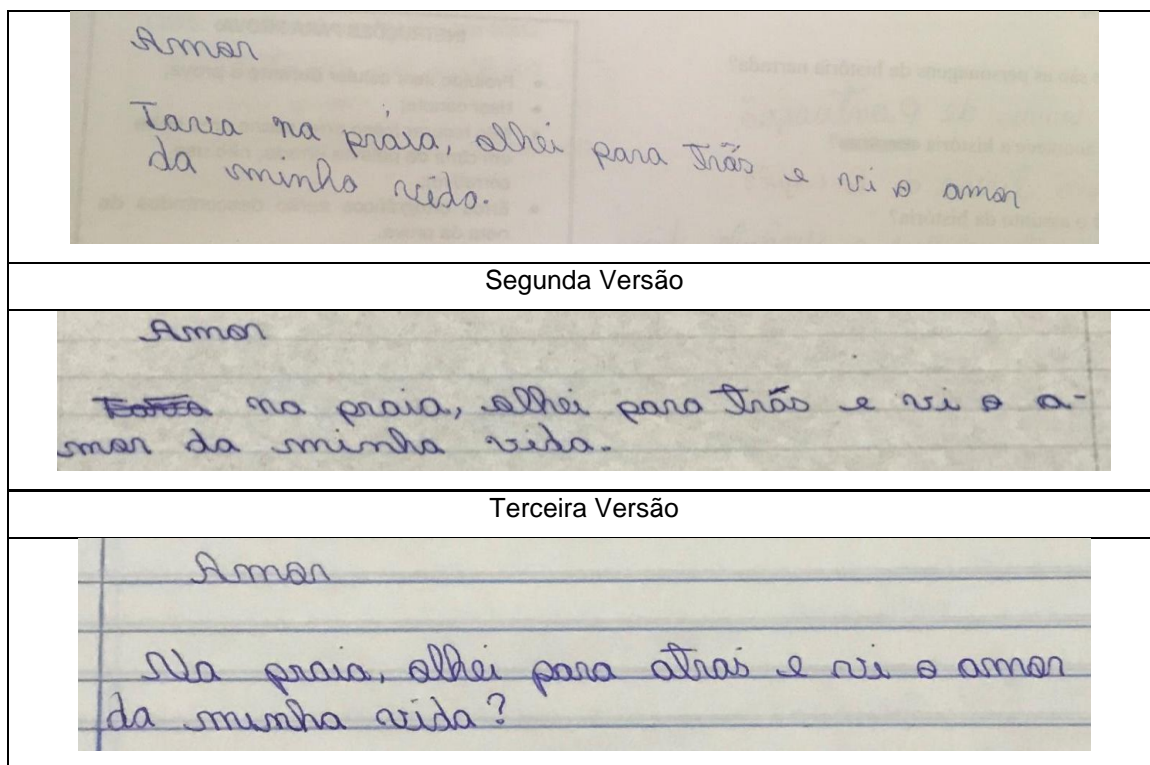 Amor
Tava na práia, olhei para Trãs e vi o amor
da minha vida.
Segunda Versão
Amor
Tava na praia, olhei para Trãs e vi o a-
mor da minha vida.
Terceira Versão
Amor
Na praia, olhei para atras e vi o amor
da minha vida?